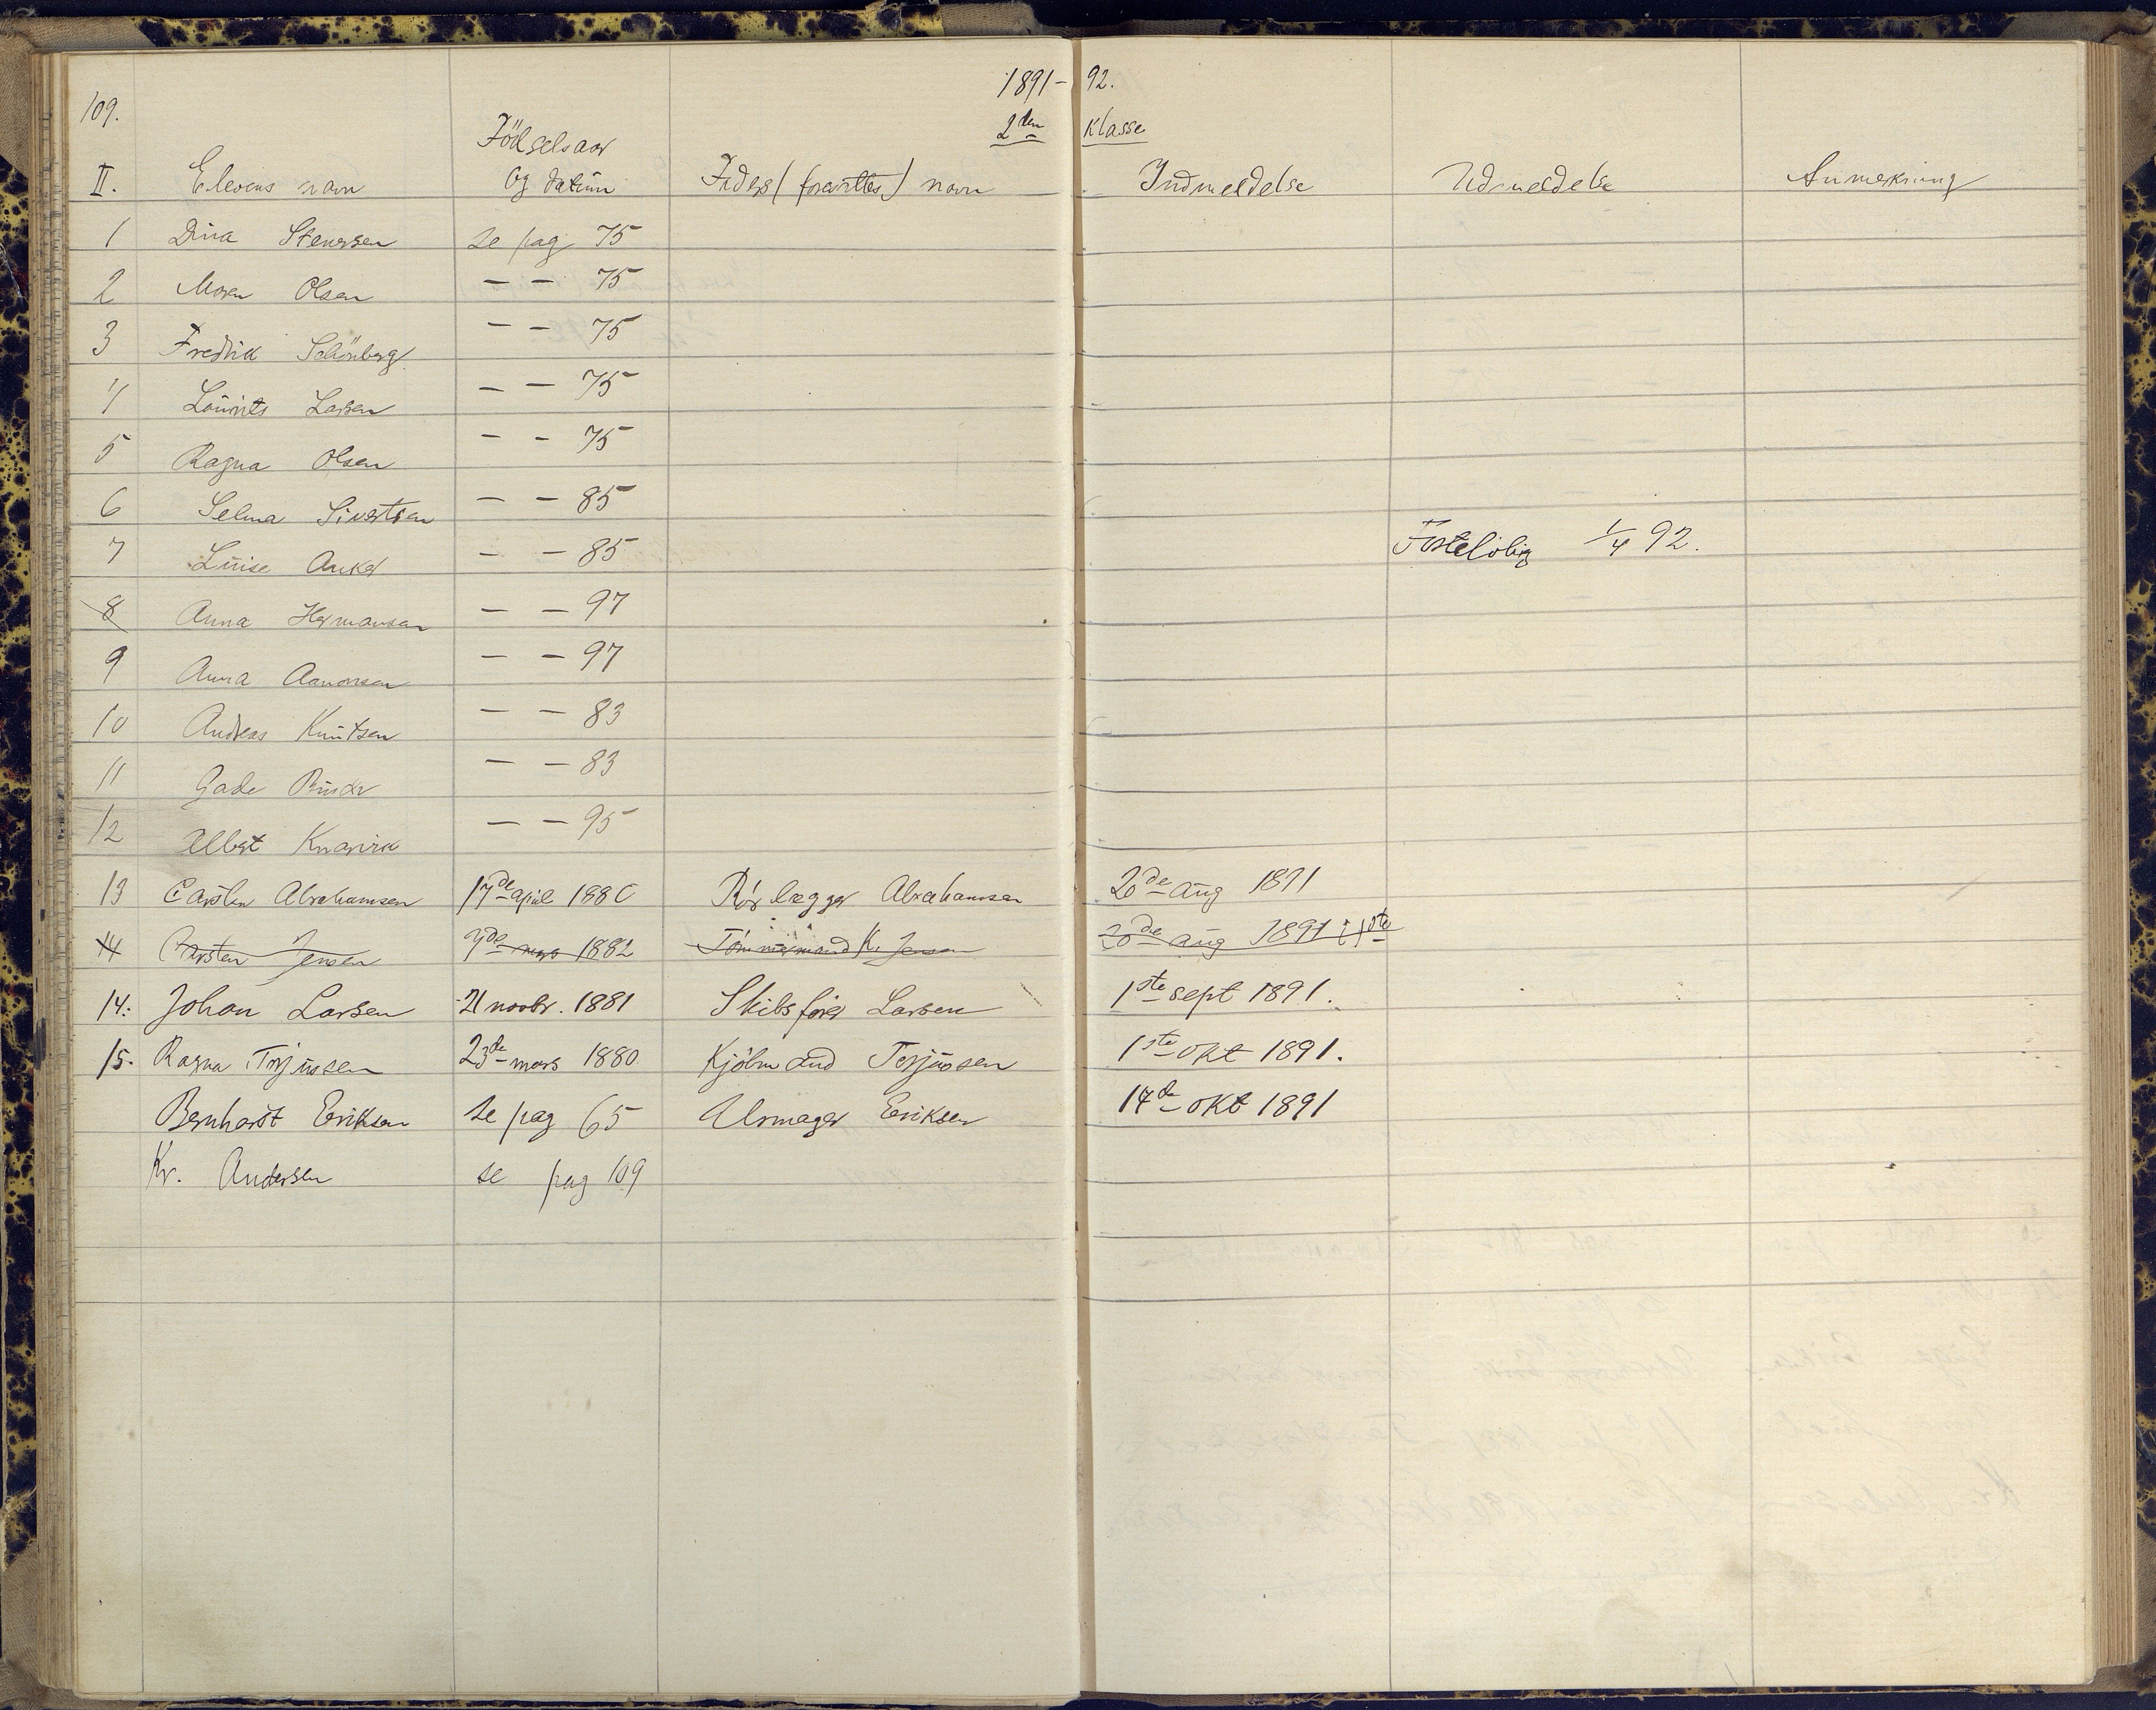 1891-92.
109.
2den Klasse
Födselsaar
II. Elevens navn og datum Faders (foresattes) navn Indmeldelse Udmeldelse Anmerkning
1 Dina Stenersen se pag 75
2 Maren Olsen — — 75
3 Fredrik Schönberg — — 75
4 Laurits Larsen — — 75
5 Ragna Olsen — — 75
6 Selma Sivertsen — — 85
7 Luise Anker — — 85 1/4 92.
8 Anna Hermansen — — 97
9 Anna Aanonsen — — 97
10 Andreas Knutsen — — 83
11 Gade — — 83
12 Albert — — 95
13 Carsten Abrahamsen 17de april 1880 Rörlægger Abrahamsen 20de aug 1891
14 Carsten Jensen 7de mars 1882 Tömmermand K. Jensen 20de aug 1891 i 1ste
14: Johan Larsen 21 novbr. 1881 Skibsförer Larsen 1ste sept 1891.
15. Ragna Terjussen 23de mars 1880 Kjöbmand Terjussen 1ste okt 1891.
Bernhardt Eriksen se pag 65 Urmager Eriksen 14de okt 1891
Kr. Andersen se pag 109